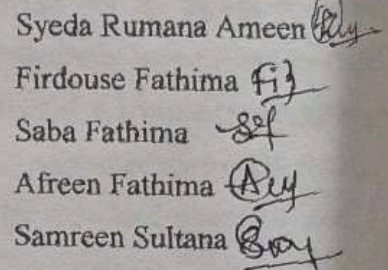 Syeda Rumana Ameen
Firdouse Fathima
Saba Fathima
Afreen Fathima
Samreen Sultana